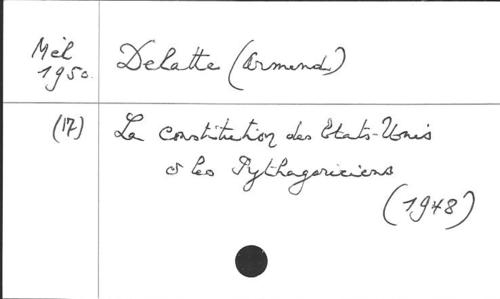 Mél
1950.
Delatte (Armand)
(17)
La constitution des Etats-Unis
& les Pythagoriciens
(1948)